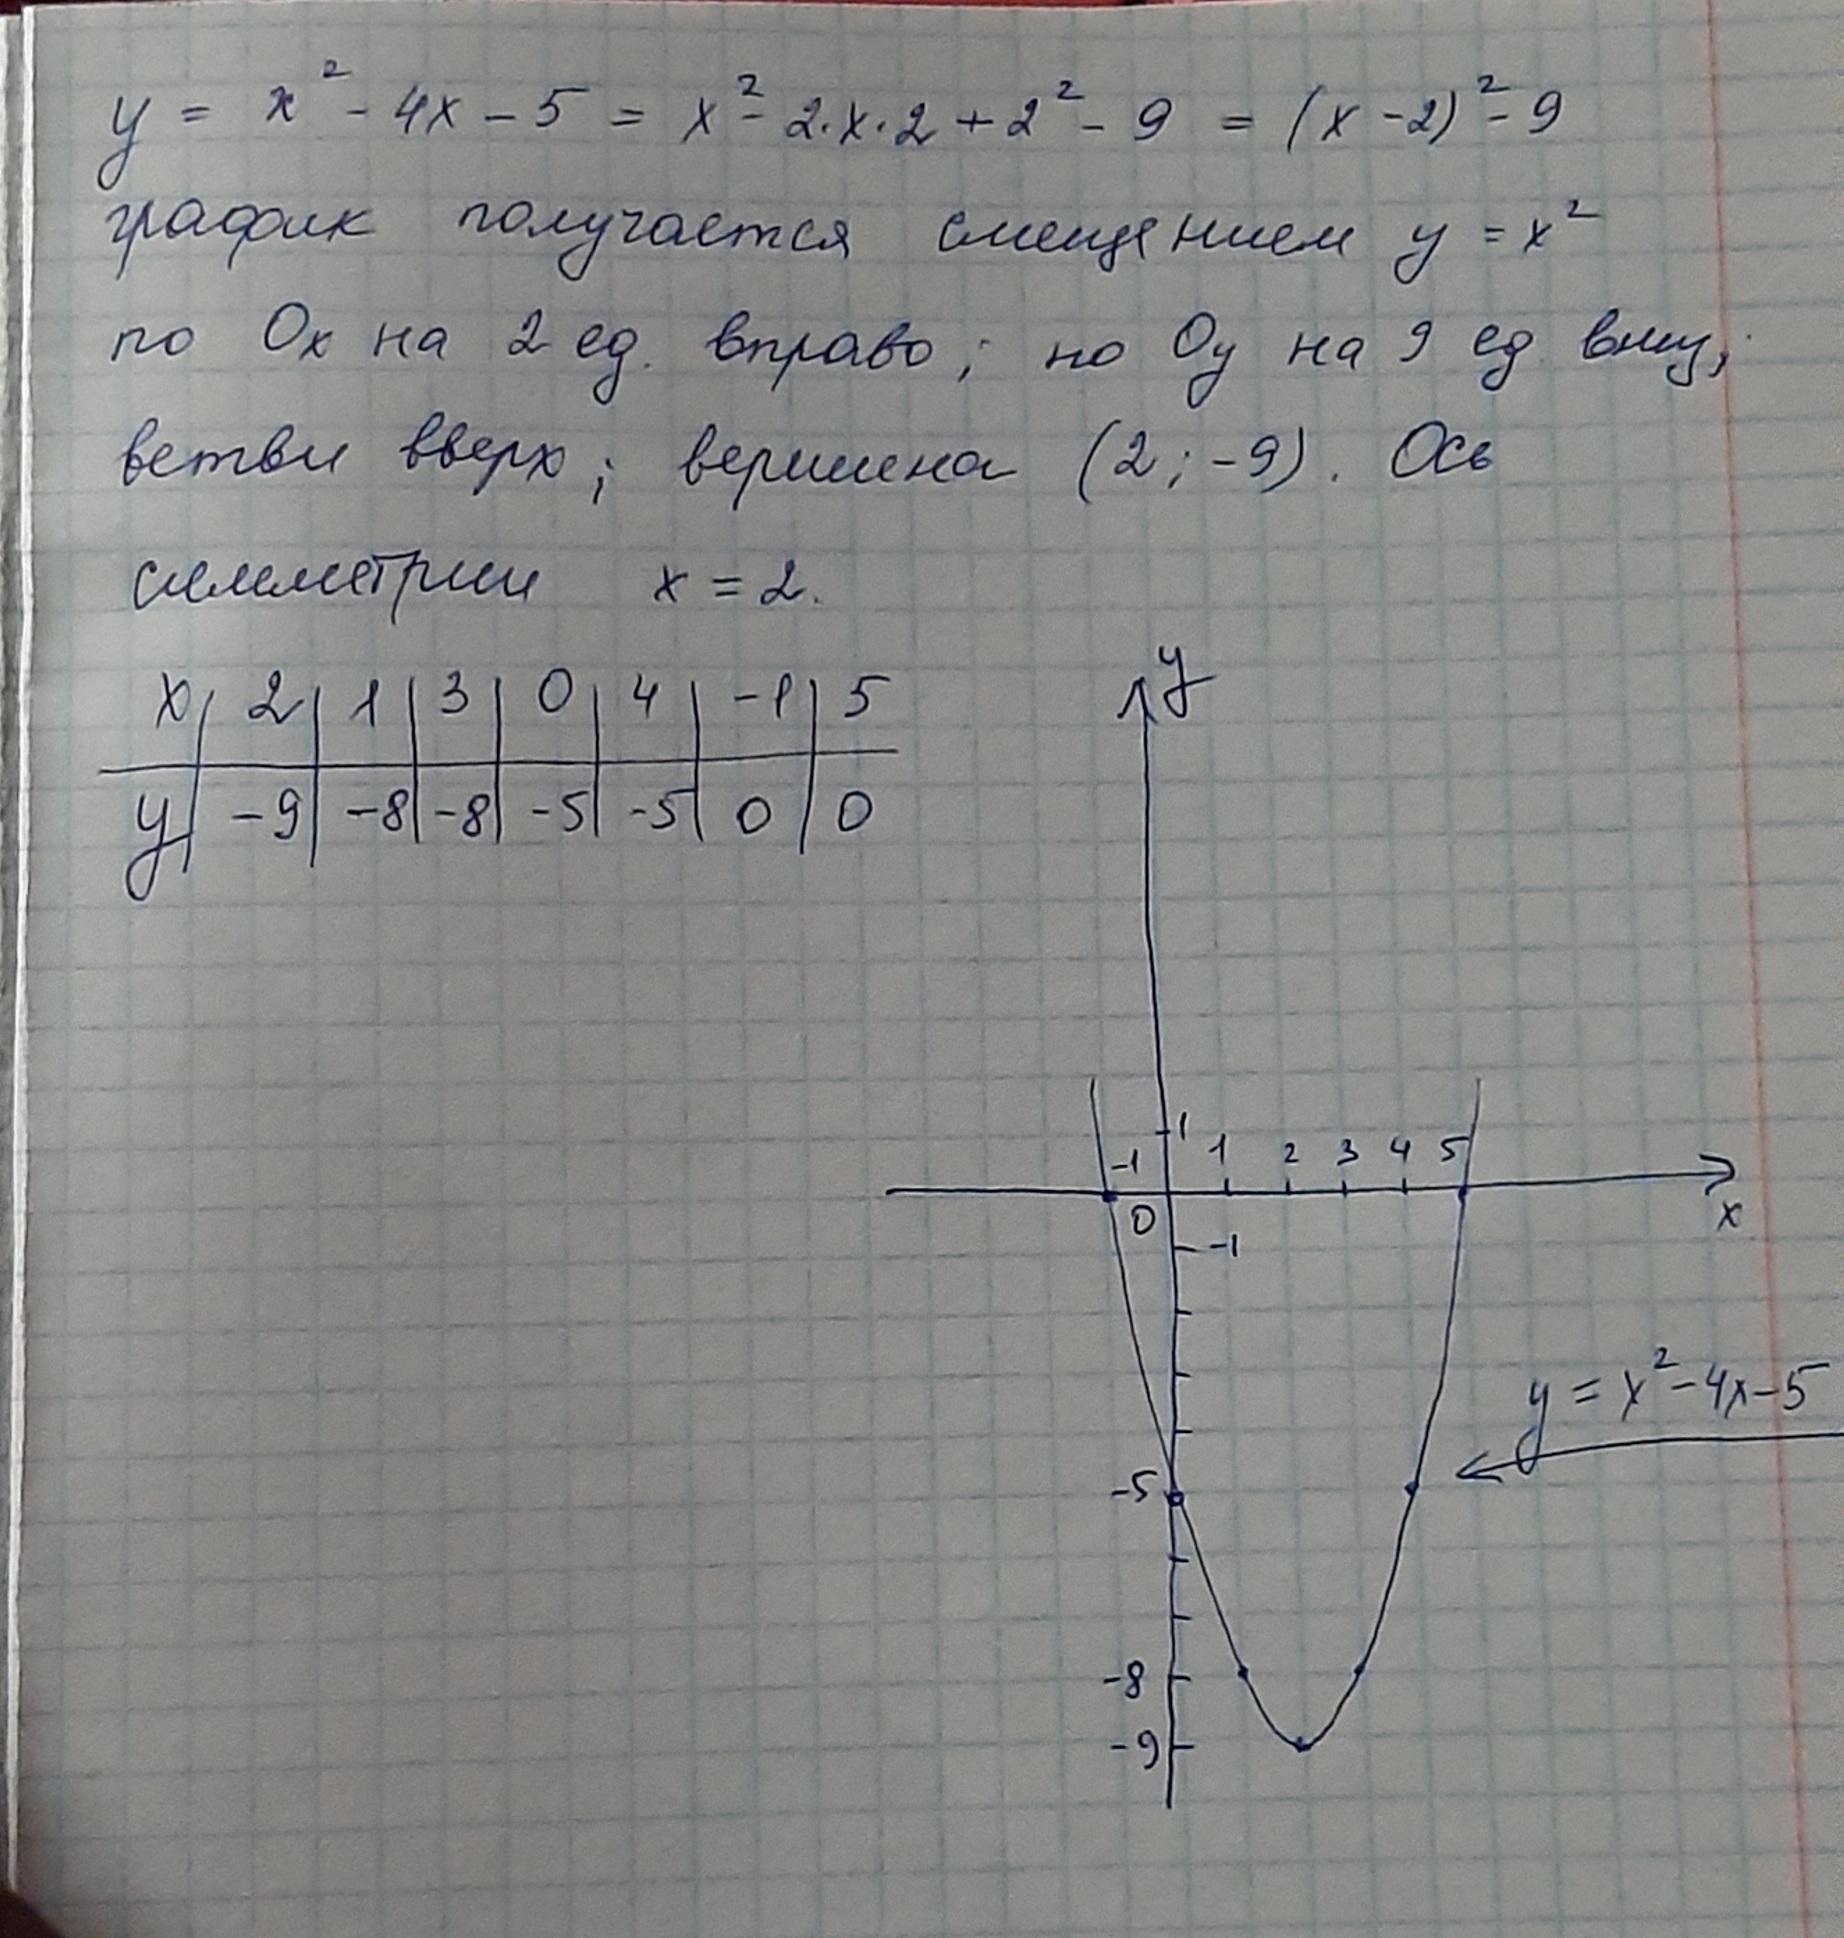 y = x² - 4x - 5 = x² - 2·x·2 + 2² - 9 = (x - 2)² - 9
график получается смещением y = x²
по Ox на 2 ед. вправо; по Oy на 9 ед. вниз;
ветви вверх; вершина (2; -9). Ось
симметрии x = 2.
x | 2 | 1 | 3 | 0 | 4 | -1 | 5
y | -9 | -8 | -8 | -5 | -5 | 0 | 0
y
1
-1 1 2 3 4 5
0 x
-1
y = x² - 4x - 5
-5
-8
-9